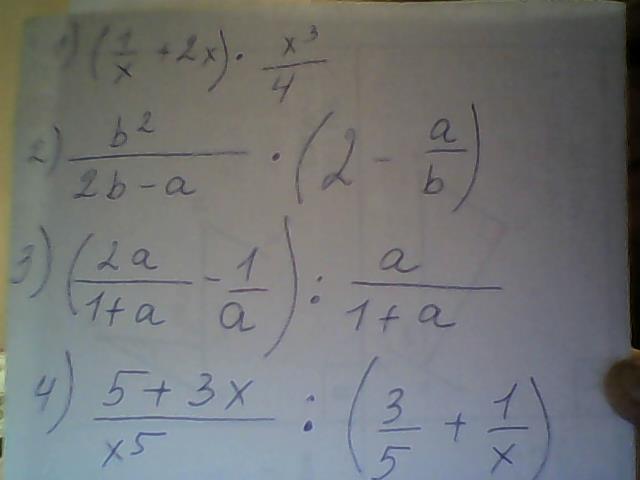 1) (1/x + 2x) · x³/4
2) b²/(2b - a) · (2 - a/b)
3) (2a/(1+a) - 1/a) : a/(1+a)
4) (5 + 3x)/x⁵ : (3/5 + 1/x)